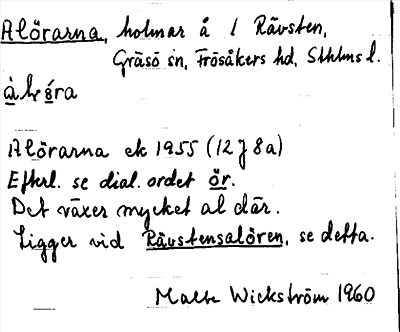 Alörarna, holmar å 1 Rävsten,
Gräsö sn, Frösåkers hd, Sthlms l.
Alörarna ek 1955 (12 J 8 a)
Efterl. se dial. ordet ör.
Det växer mycket al där.
Ligger vid Rävstensalören, se detta.
Malte Wickström 1960